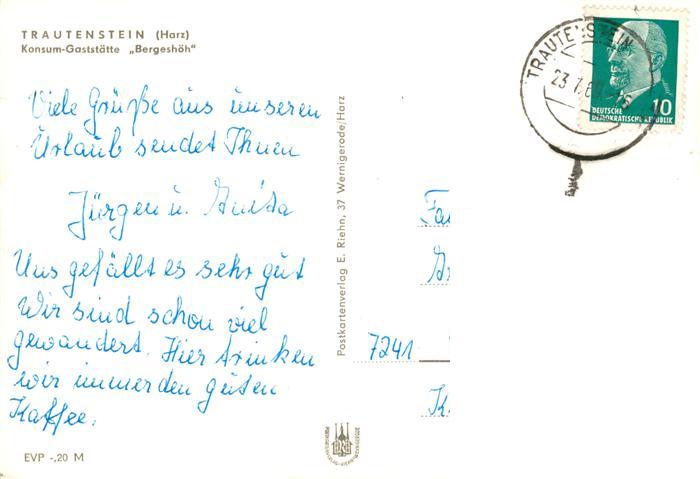 TRAUTENSTEIN (Harz)
Konsum-Gaststätte „Bergeshöh"
Viele Grüße aus unseren
Urlaub sendet Ihnen
Jürgen u. Anita
Uns gefällt es sehr gut
Wir sind schon viel
gewandert. Hier trinken
wir immer den guten
Kaffee.
EVP -,20 M
Postkartenverlag E. Riehn, 37 Wernigerode/Harz
TRAUTENSTEIN
23.7.6
10
DEUTSCHE
DEMOKRATISCHE REPUBLIK
7241